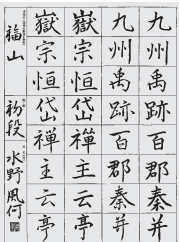 九州禹跡百郡秦并
九州禹跡百郡秦并
嶽宗恒岱禪主云亭
嶽宗恒岱禪主云亭
福山 初段 水野風何